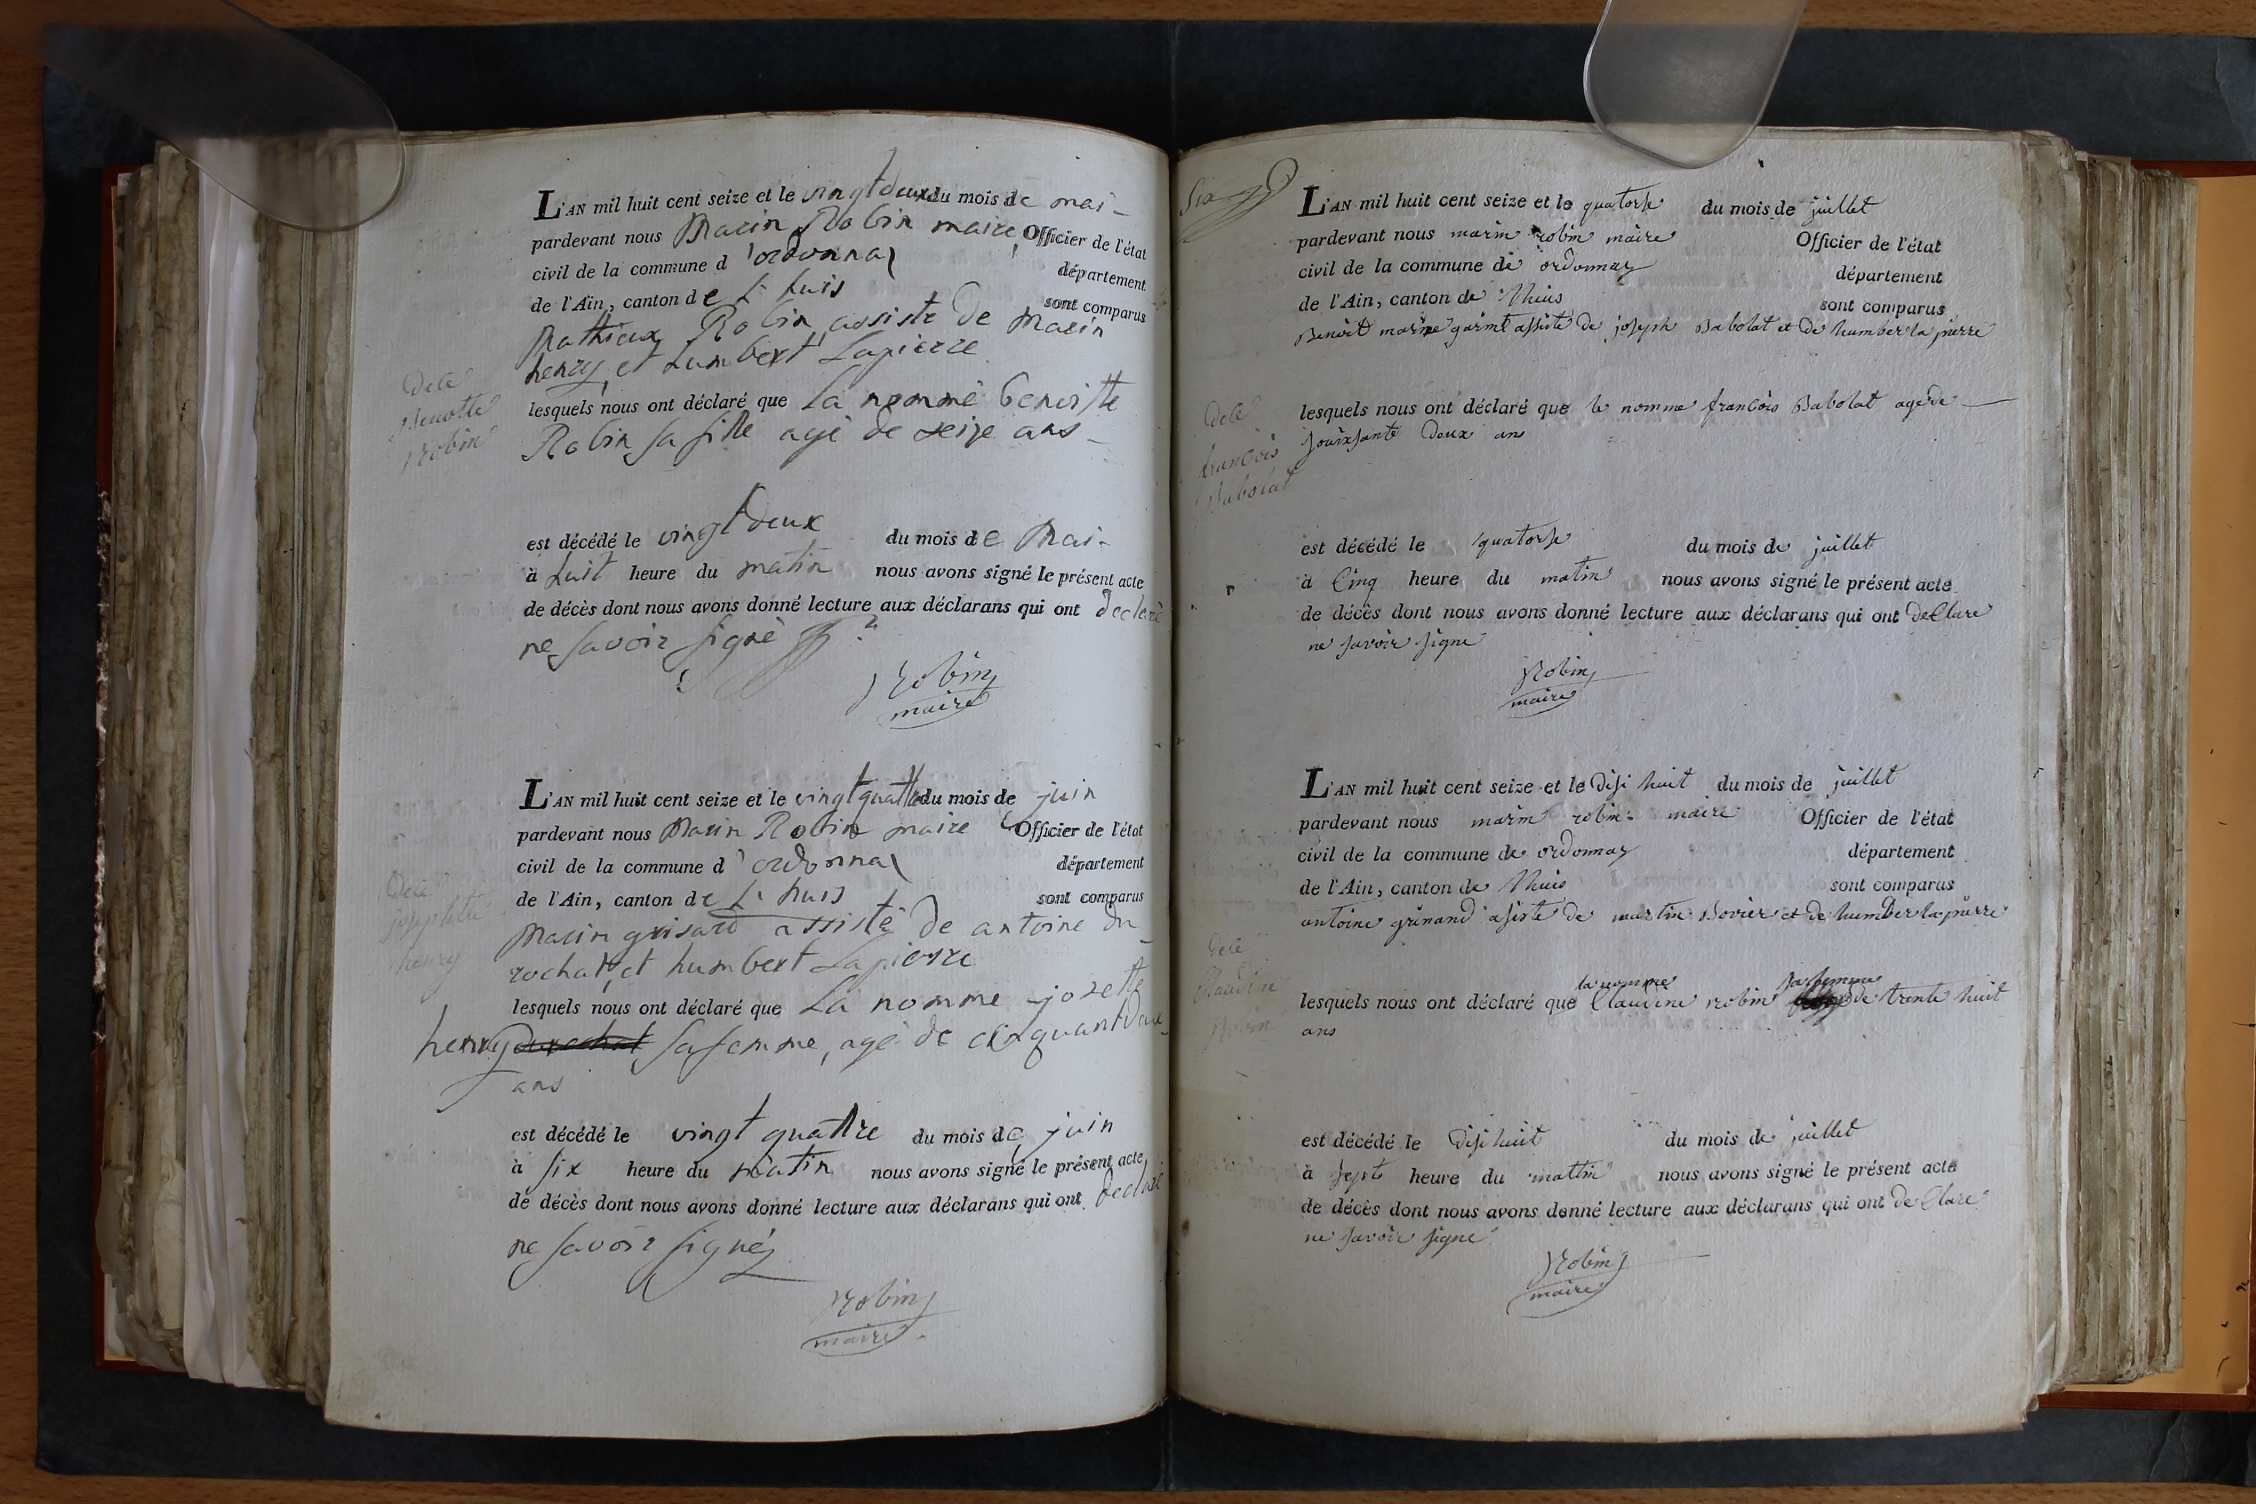 L'AN mil huit cent seize et le vingt deux du mois de mai
pardevant nous Marin Robin maire Officier de l'état
civil de la commune d'ordonnaz
département
de l'Ain, canton de L huis
sont comparus
Mathieux Robin assiste de Marin
henry et humbert Lapierre
Décé
Benoitte
Robin
lesquels nous ont déclaré que La nommé benoitte
Robin sa fille agé de seize ans
est décédé le vingt deux du mois de Mai
à huit heure du matin nous avons signé le présent acte
de décès dont nous avons donné lecture aux déclarans qui ont declaré
ne savoir signé
Robin
maire
L'AN mil huit cent seize et le vingt quattre du mois de juin
pardevant nous Marin Robin maire Officier de l'état
civil de la commune d'ordonnaz
département
de l'Ain, canton de L huis
sont comparus
Marin grisard assisté de antoine du
rochat, et humbert Lapierre
Décé
josephte
henry
lesquels nous ont déclaré que La nomme josette
henry durochat sa femme, agé de cinquant deux
ans
est décédé le vingt quattre du mois de juin
à six heure du matin nous avons signé le présent acte
de décès dont nous avons donné lecture aux déclarans qui ont declaré
ne savoir signé
Robin
maire
Six
L'AN mil huit cent seize et le quatorse du mois de juillet
pardevant nous marin robin maire Officier de l'état
civil de la commune de ordonnaz
département
de l'Ain, canton de Lhuis
sont comparus
Benoit marine assiste de joseph Babolat et de humber la pierre
Décé
francois
Babolat
lesquels nous ont déclaré que le nomme francois Babolat age de
souixsante deux ans
est décédé le quatorse du mois de juillet
à Cinq heure du matin nous avons signé le présent acte
de décès dont nous avons donné lecture aux déclarans qui ont deClare
ne savoir signe
Robin
maire
L'AN mil huit cent seize et le disi huit du mois de juillet
pardevant nous marin robin maire Officier de l'état
civil de la commune de ordonnaz
département
de l'Ain, canton de Lhuis
sont comparus
antoine grinand asiste de martin Bovier et de humber la pierre
Décé
Claudine
Robin
la nomme sa femme
lesquels nous ont déclaré que Claudine robin de trente huit
ans
est décédé le disi huit du mois de juillet
à septs heure du mattin nous avons signé le présent acte
de décès dont nous avons donné lecture aux déclarans qui ont deClare
ne savoir signe
Robin
maire